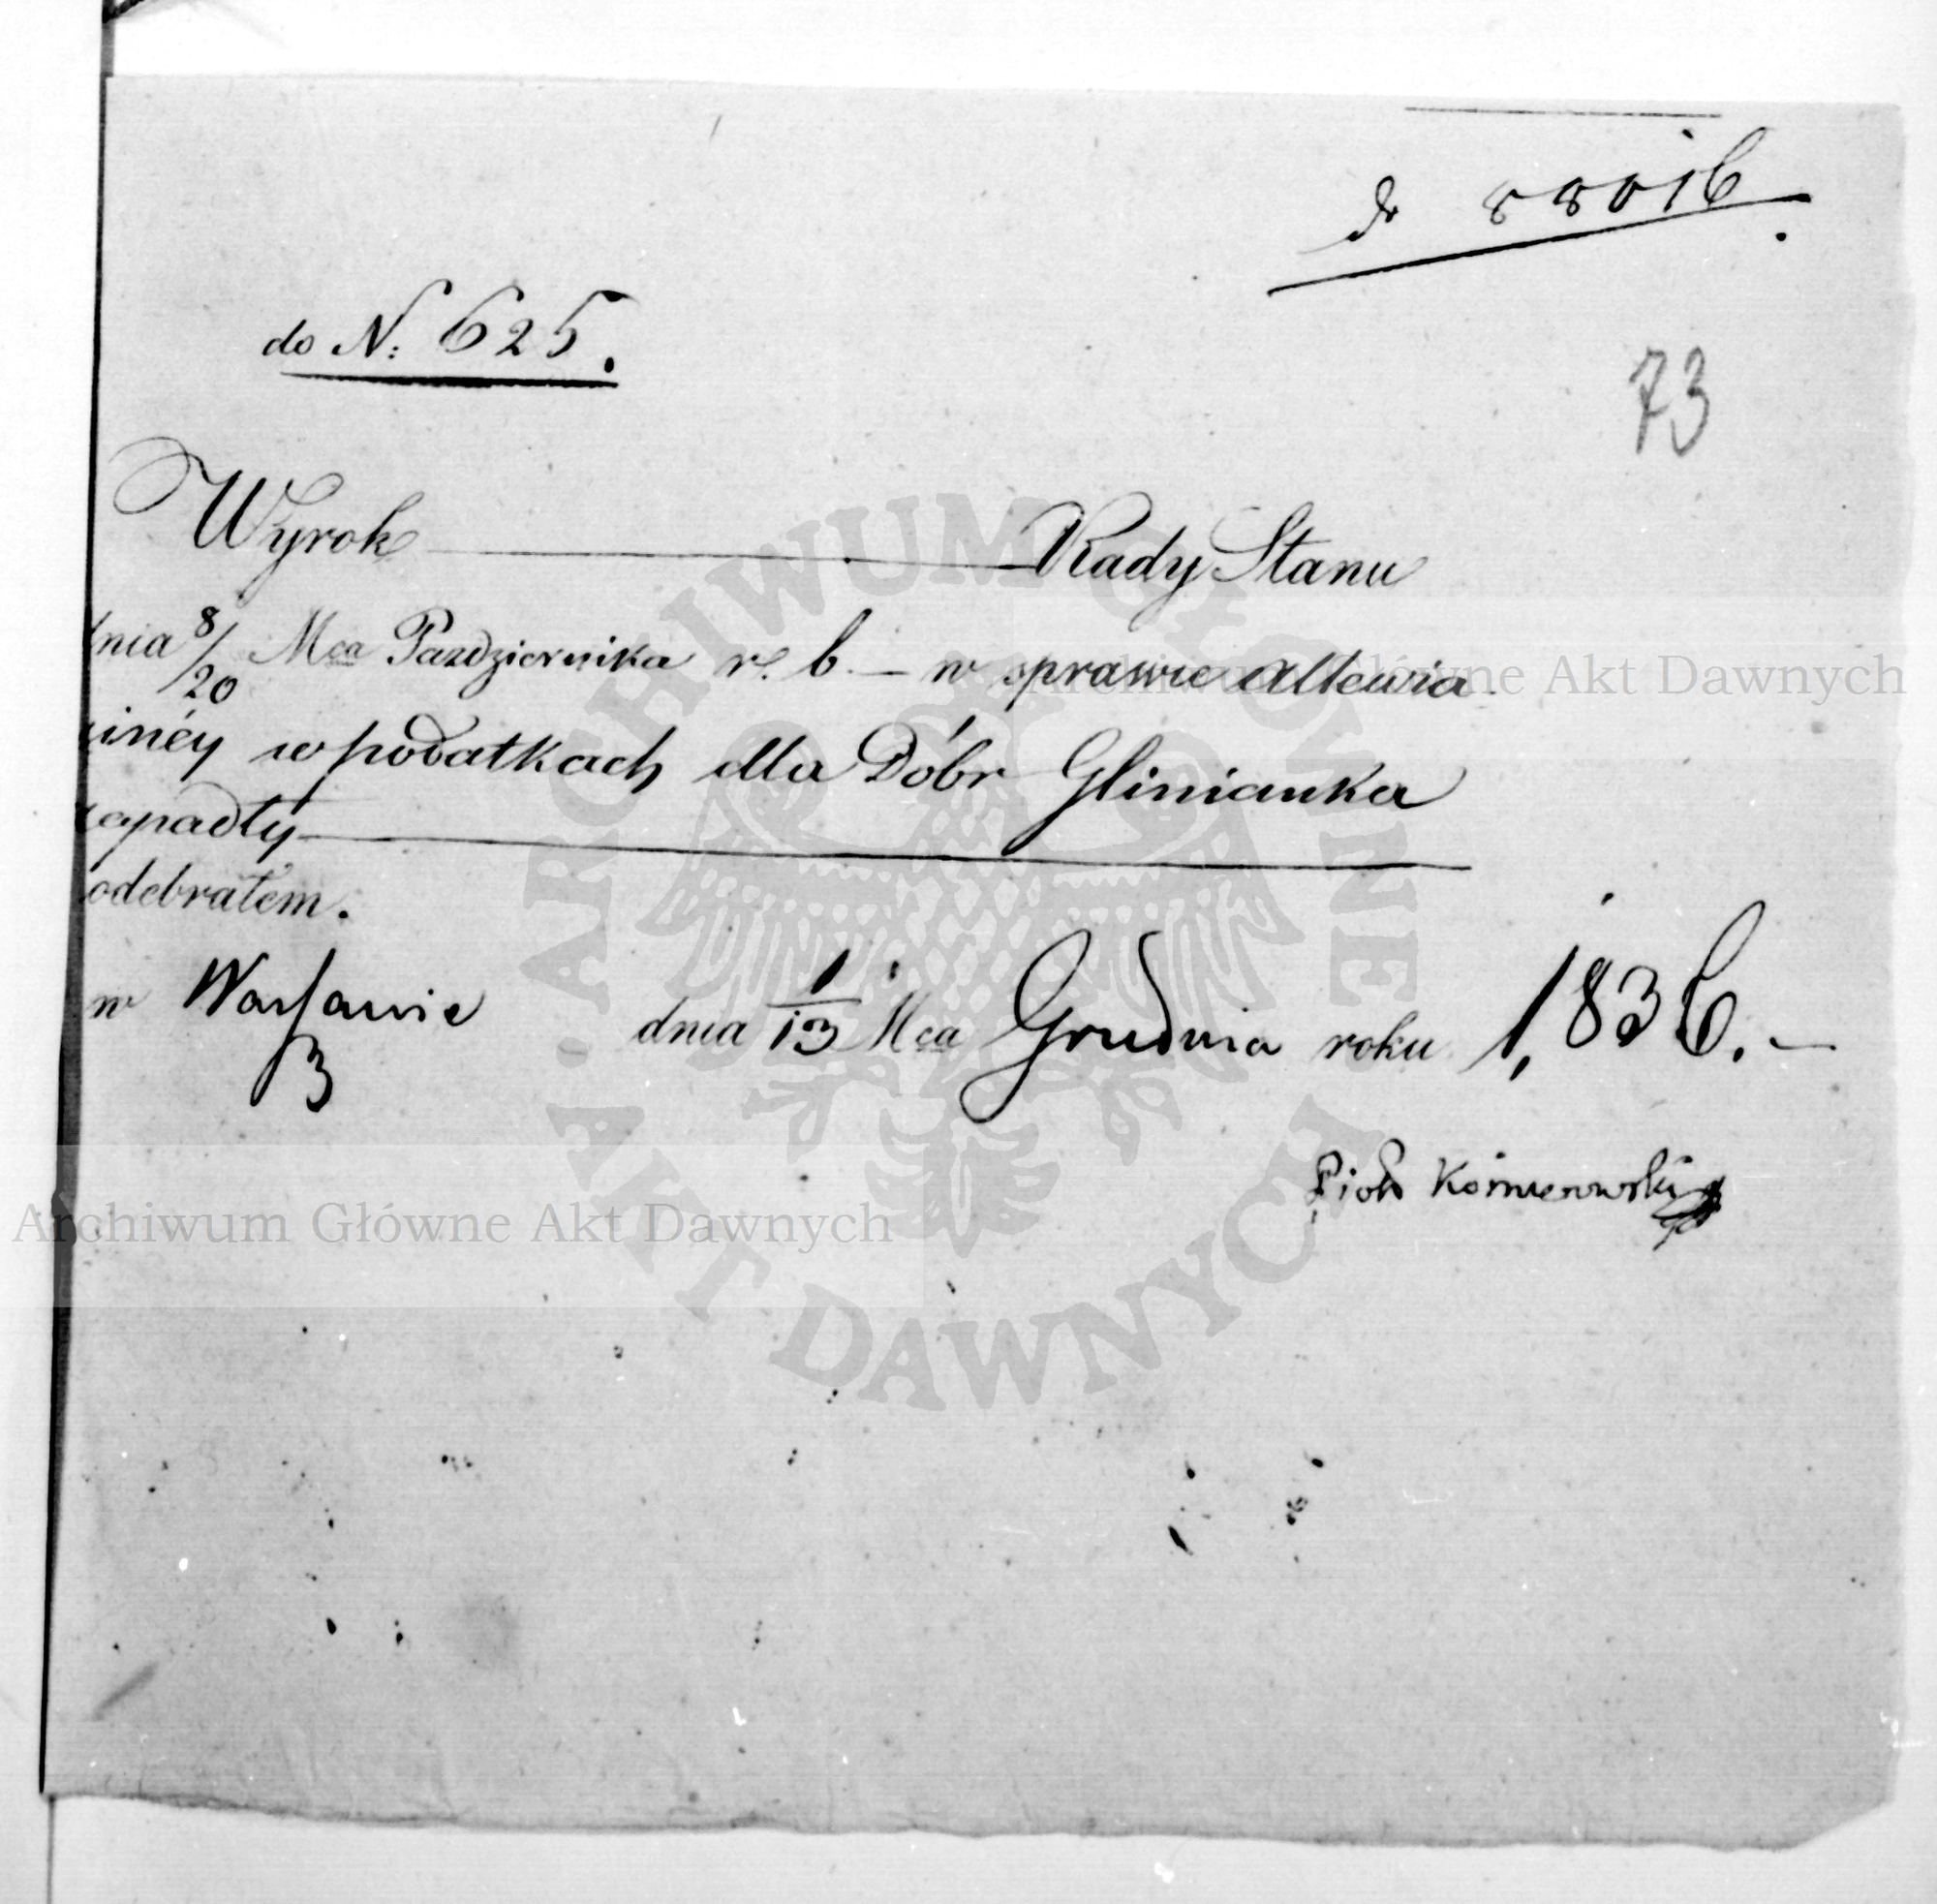 do 88016.
do N: 625.
73
Wyrok Rady Stanu
dnia 8/20 Mca Pazdziernika r. b. – w sprawie allewia
cinéy w podatkach dla Dóbr Glinianka
zapadły
odebrałem.
w Warszawie dnia 1/13 Mca Grudnia roku 1836. –
Piotr
ARCHIWUM GŁÓWNE AKT DAWNYCH
Archiwum Główne Akt Dawnych
Archiwum Główne Akt Dawnych